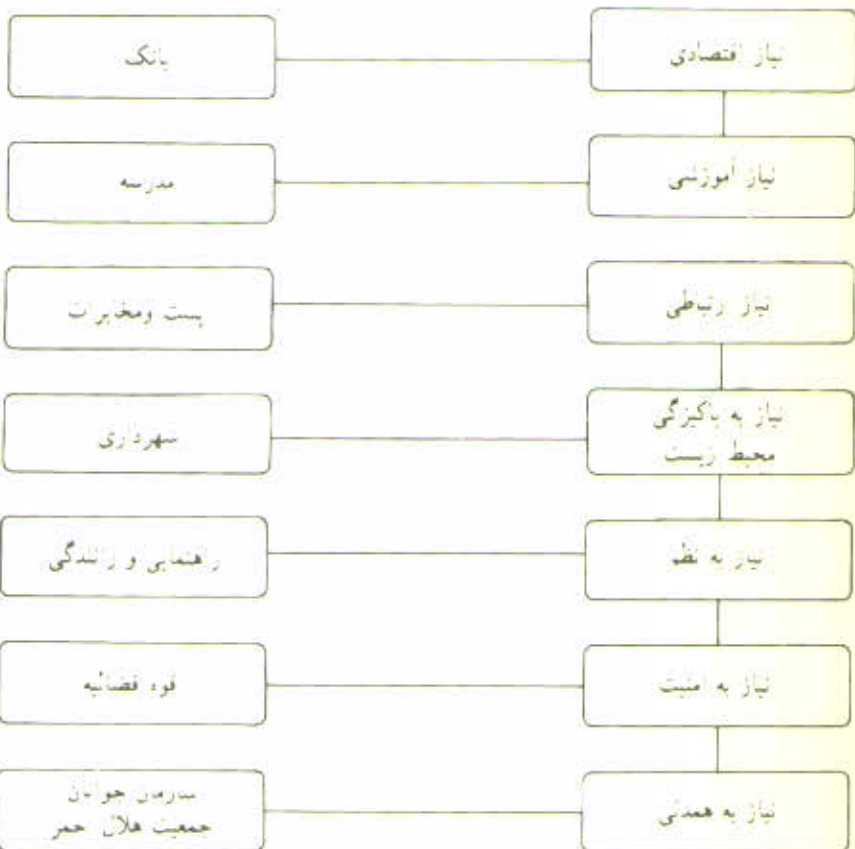 نیاز اقتصادی
بانک
نیاز آموزشی
مدرسه
نیاز ارتباطی
پست ومخابرات
نیاز به پاکیزگی
محیط زیست
شهرداری
نیاز به نظم
راهنمایی و رانندگی
نیاز به امنیت
قوه قضائیه
نیاز به همدلی
سازمان جوانان
جمعیت هلال حمر